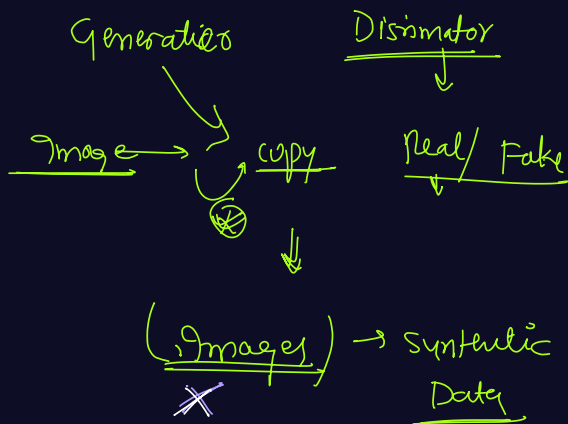 Generatior Disrimator
Image copy Real / Fake
(Images) → Synthetic
Data